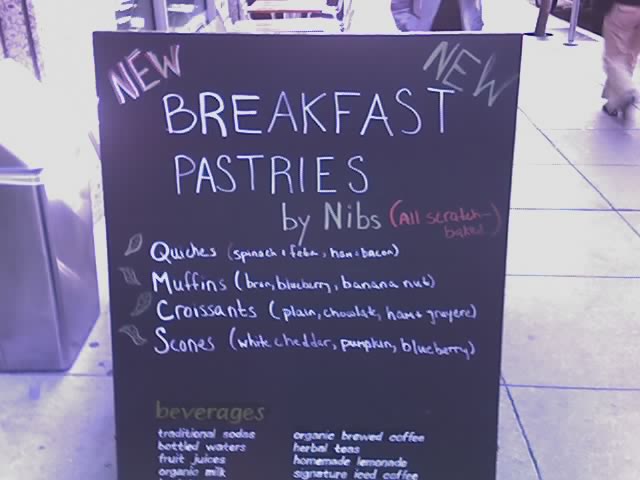 NEW NEW
BREAKFAST
PASTRIES
by Nibs (All scratch-
baked)
Quiches (spinach & feta, ham & bacon)
Muffins (bran, blueberry, banana nut)
Croissants (plain, chocolate, ham & gruyere)
Scones (white cheddar, pumpkin, blueberry)
beverages
traditional sodas organic brewed coffee
bottled waters herbal teas
fruit juices homemade lemonade
organic milk signature iced coffee